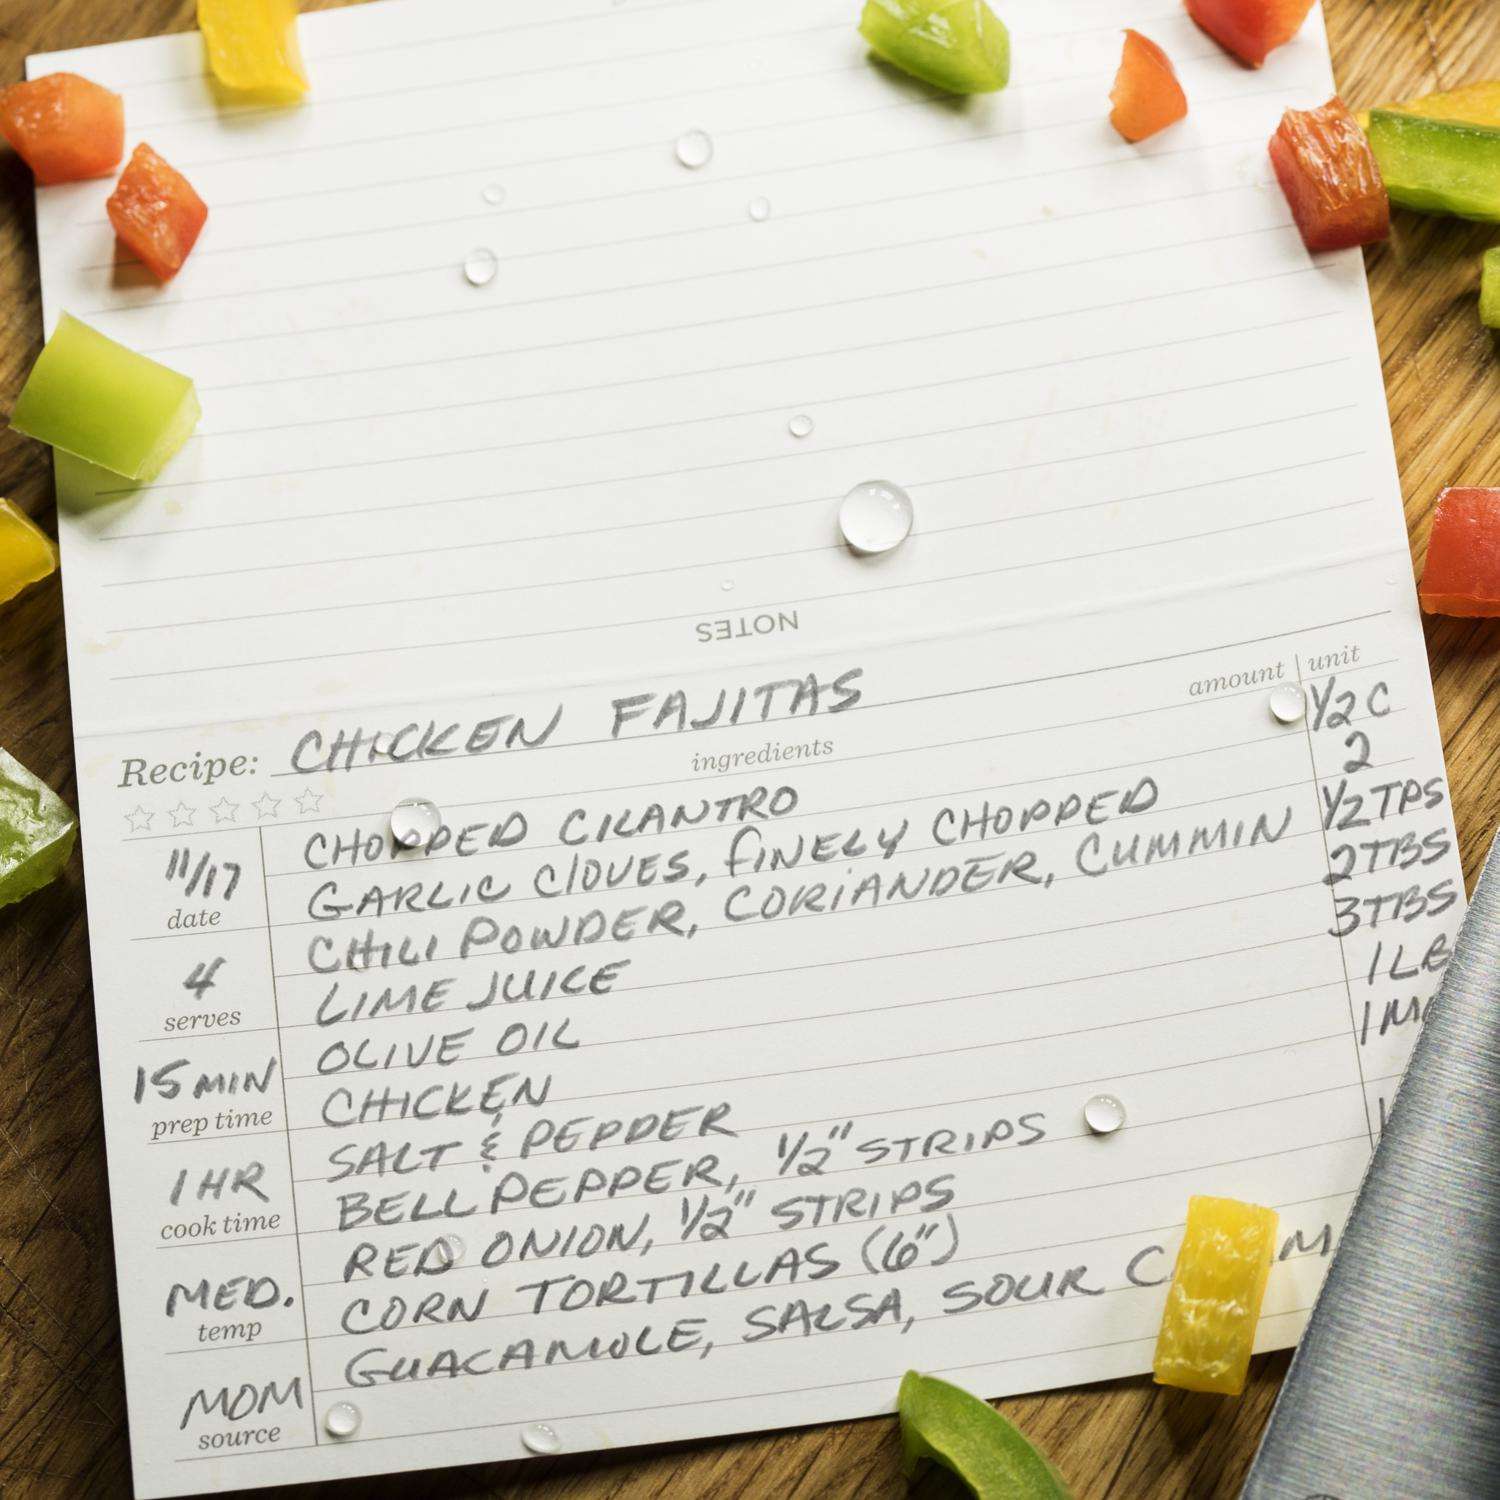 NOTES
Recipe: CHICKEN FAJITAS
ingredients
amount | unit
CHOPPED CILANTRO 1/2 C
GARLIC CLOVES, FINELY CHOPPED 2
CHILI POWDER, CORIANDER, CUMMIN 1/2 TPS
LIME JUICE 2 TBS
OLIVE OIL 3 TBS
CHICKEN 1 LB
SALT & PEPPER 1
BELL PEPPER, 1/2" STRIPS
RED ONION, 1/2" STRIPS
CORN TORTILLAS (6")
GUACAMOLE, SALSA, SOUR
11/17
date
4
serves
15 MIN
prep time
1 HR
cook time
MED.
temp
MOM
source